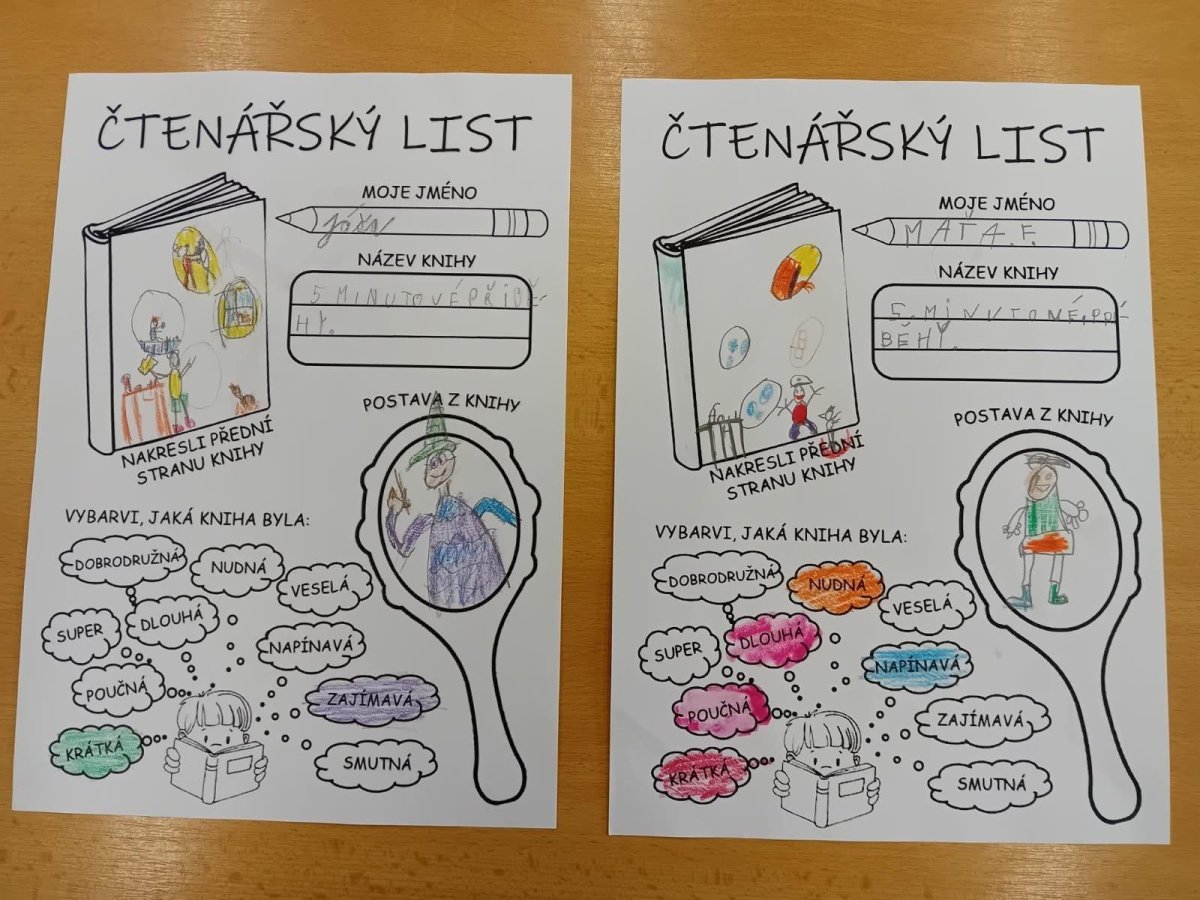 ČTENÁŘSKÝ LIST
MOJE JMÉNO
Jóža
NÁZEV KNIHY
5 MINUTOVÉ PŘÍBĚ-
HY.
NAKRESLI PŘEDNÍ
STRANU KNIHY
POSTAVA Z KNIHY
VYBARVI, JAKÁ KNIHA BYLA:
DOBRODRUŽNÁ
NUDNÁ
VESELÁ
SUPER
DLOUHÁ
NAPÍNAVÁ
POUČNÁ
ZAJÍMAVÁ
KRÁTKÁ
SMUTNÁ
ČTENÁŘSKÝ LIST
MOJE JMÉNO
MAŤA.F.
NÁZEV KNIHY
5.MINUTONÉ.PŘÍ-
BĚHY.
NAKRESLI PŘEDNÍ
STRANU KNIHY
POSTAVA Z KNIHY
VYBARVI, JAKÁ KNIHA BYLA:
DOBRODRUŽNÁ
NUDNÁ
VESELÁ
SUPER
DLOUHÁ
NAPÍNAVÁ
POUČNÁ
ZAJÍMAVÁ
KRÁTKÁ
SMUTNÁ